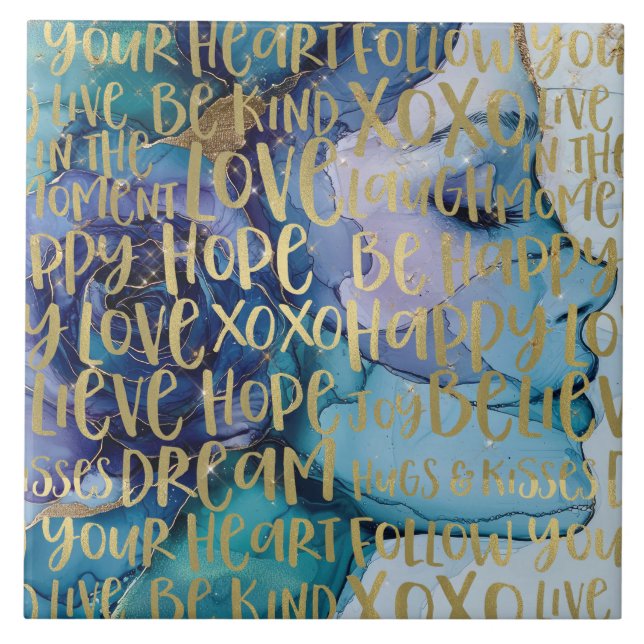 YOUR HEART FOLLOW YOU
O LIVE BE KIND XOXO LIVE
IN THE MOMENT LOVE LAUGH IN THE MOME
PPY HOPE BE HAPPY
Y LOVE XOXO HAPPY LO
LIEVE HOPE JOY BELIEV
ISSES DREAM HUGS & KISSES D
YOUR HEART FOLLOW YOU
O LIVE BE KIND XOXO LIVE